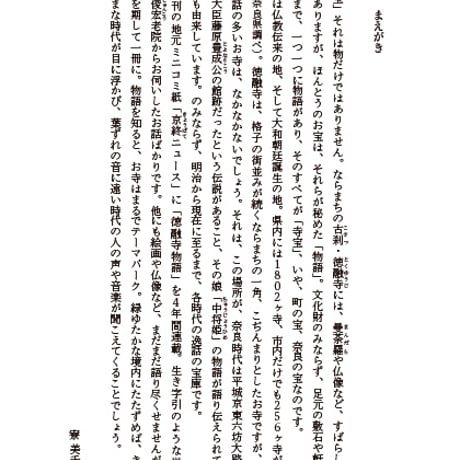 まえがき
」それは物だけではありません。ならまちの古刹・徳融寺には、曼荼羅や仏像など、すばらし
ありますが、ほんとうのお宝は、それらが秘めた「物語」。文化財のみならず、足元の敷石や軒
まで、一つ一つに物語があり、そのすべてが「寺宝」、いや、町の宝、奈良の宝なのです。
は仏教伝来の地、そして大和朝廷誕生の地。県内には1802ヶ寺、市内だけでも256ヶ寺が
奈良県調べ)。徳融寺は、格子の街並みが続くならまちの一角、こぢんまりとしたお寺ですが、
話の多いお寺は、なかなかないでしょう。それは、この場所が、奈良時代は平城京東六坊大路
大臣藤原豊成公の館跡だったという伝説があること、その娘「中将姫」の物語が語り伝えられて
も由来しています。のみならず、明治から現在に至るまで、各時代の逸話の宝庫です。
刊の地元ミニコミ紙「京終ニュース」に「徳融寺物語」を4年間連載。生き字引のような
俊宏老院からお伺いしたお話ばかりです。他にも絵画や仏像など、まだまだ語り尽くせませんが
を期して一冊に。物語を知ると、お寺はまるでテーマパーク。緑ゆたかな境内にたたずめば、さ
まな時代が目に浮かび、葉ずれの音に遠い時代の人の声や音楽が聞こえてくることでしょう。
寮 美